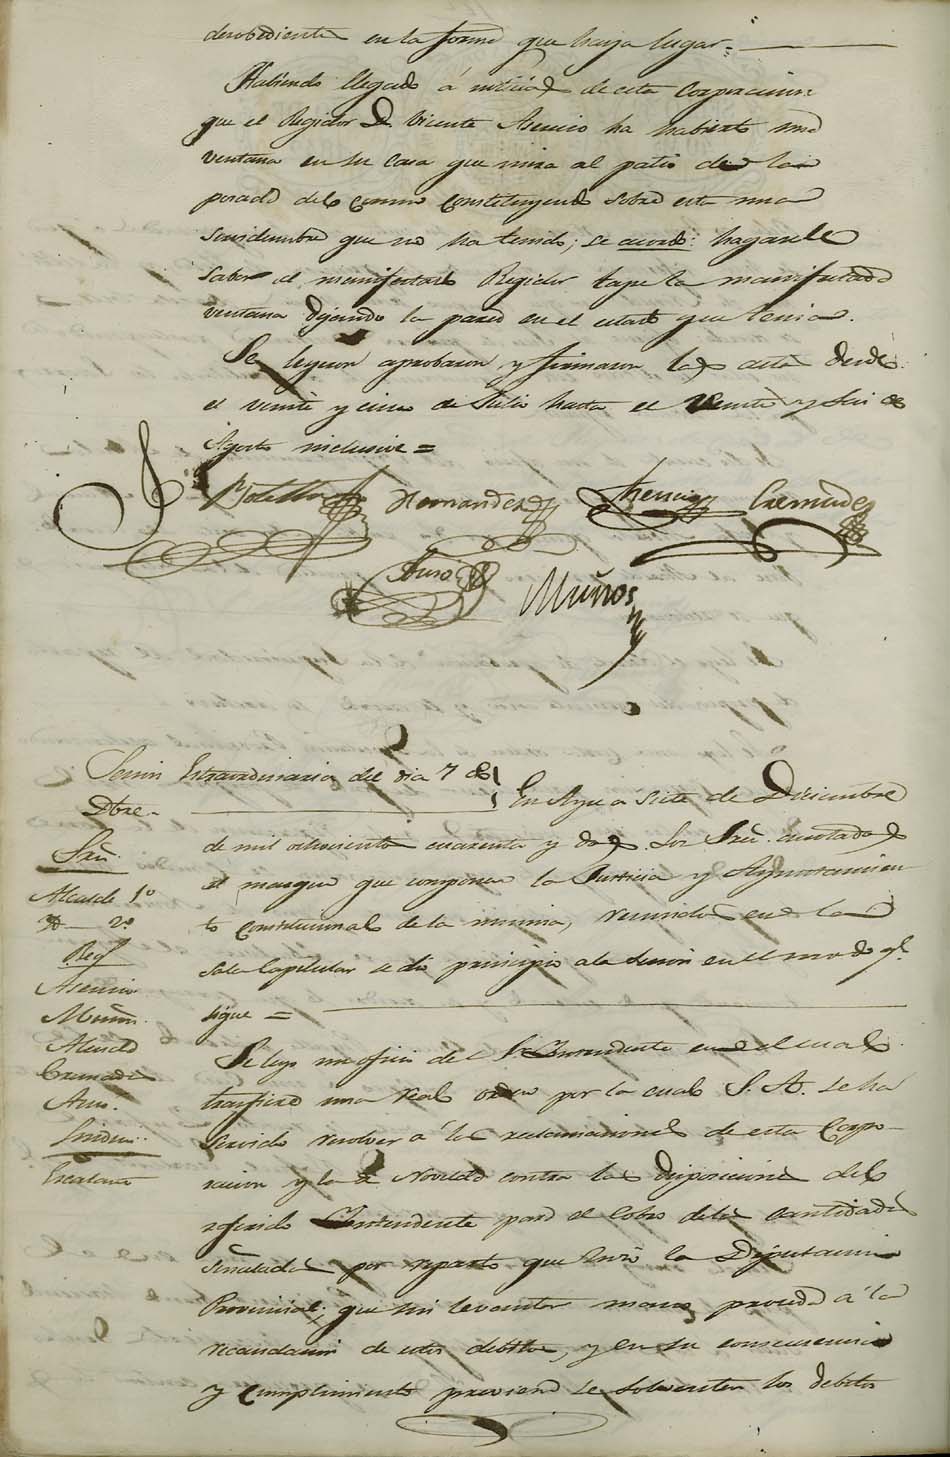 desobediente en la forma que haya lugar =
Habiendo llegado á noticia de esta Corporacion
que el Regidor D. Vicente Asencio ha habierto una
ventana en su casa que mira al patio de la
posada del comun constituyendo sobre esta una
servidumbre que no ha tenido; se acordó: hagasele
saber al manifestado Regidor tape la manifestada
ventana dejando la pared en el estado que tenia.
Se leyeron aprobaron y firmaron las actas desde
el veinte y cinco de Julio hasta el veinte y seis de
Agosto inclusive =
Hernandez Asencio Cremades
Muños
Sesion Extraordinaria del dia 7 de
Dbre.
Sres.
Alcalde 1º
Yd — 2º
Reg
Asencio
Muños
Cremades
Sindico
Escalano
En Aspe a siete de Diciembre
de mil ochocientos cuarenta y dos los Sres. anotados
al margen que componen la Justicia y Ayuntamien
to Constitucional de la misma, reunidos en la
sala Capitular se dio principio a la sesion en el modo qe.
sigue =
Se leyo un oficio del Sr. Yntendente en el cual
trasfiere una real orden por la cual S. A. se ha
servido resolver á las reclamaciones de esta Corpo-
racion y la de Novelda contra las disposiciones del
referido Yntendente para el cobro de las cantidades
señaladas por reparto que hizo la Diputacion
Provincial; que sin levantar mano proceda á la
recaudacion de estos debitos, y en su consecuencia
y cumplimiento previene se solventen los debitos